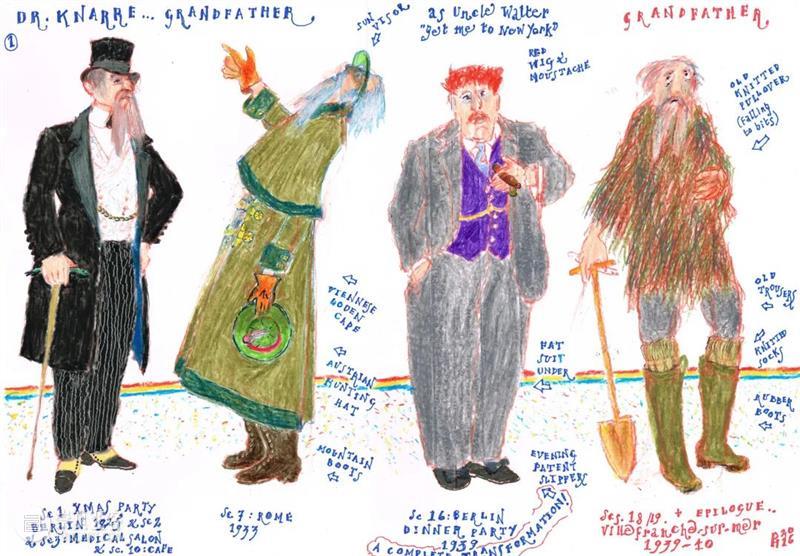 DR. KNARRE... GRANDFATHER
1
SUN
VISOR
as Uncle Walter
"get me to New York"
RED
WIG &
MOUSTACHE
GRANDFATHER
OLD
KNITTED
PULLOVER
(falling
to bits)
VIENNESE
LODEN
CAPE
AUSTRIAN
HUNTING
HAT
MOUNTAIN
BOOTS
FAT
SUIT
UNDER
EVENING
PATENT
SLIPPERS
OLD
TROUSERS
KNITTED
SOCKS
RUBBER
BOOTS
Sc 1 XMAS PARTY
BERLIN
& Sc 3: MEDICAL SALON
& Sc. 10: CAPE
Sc 7: ROME
1933
Sc 16: BERLIN
DINNER PARTY
1939
A COMPLETE TRANSFORMATION!
Scs. 18/19. + EPILOGUE..
Villefranche-sur-mer
1939-40